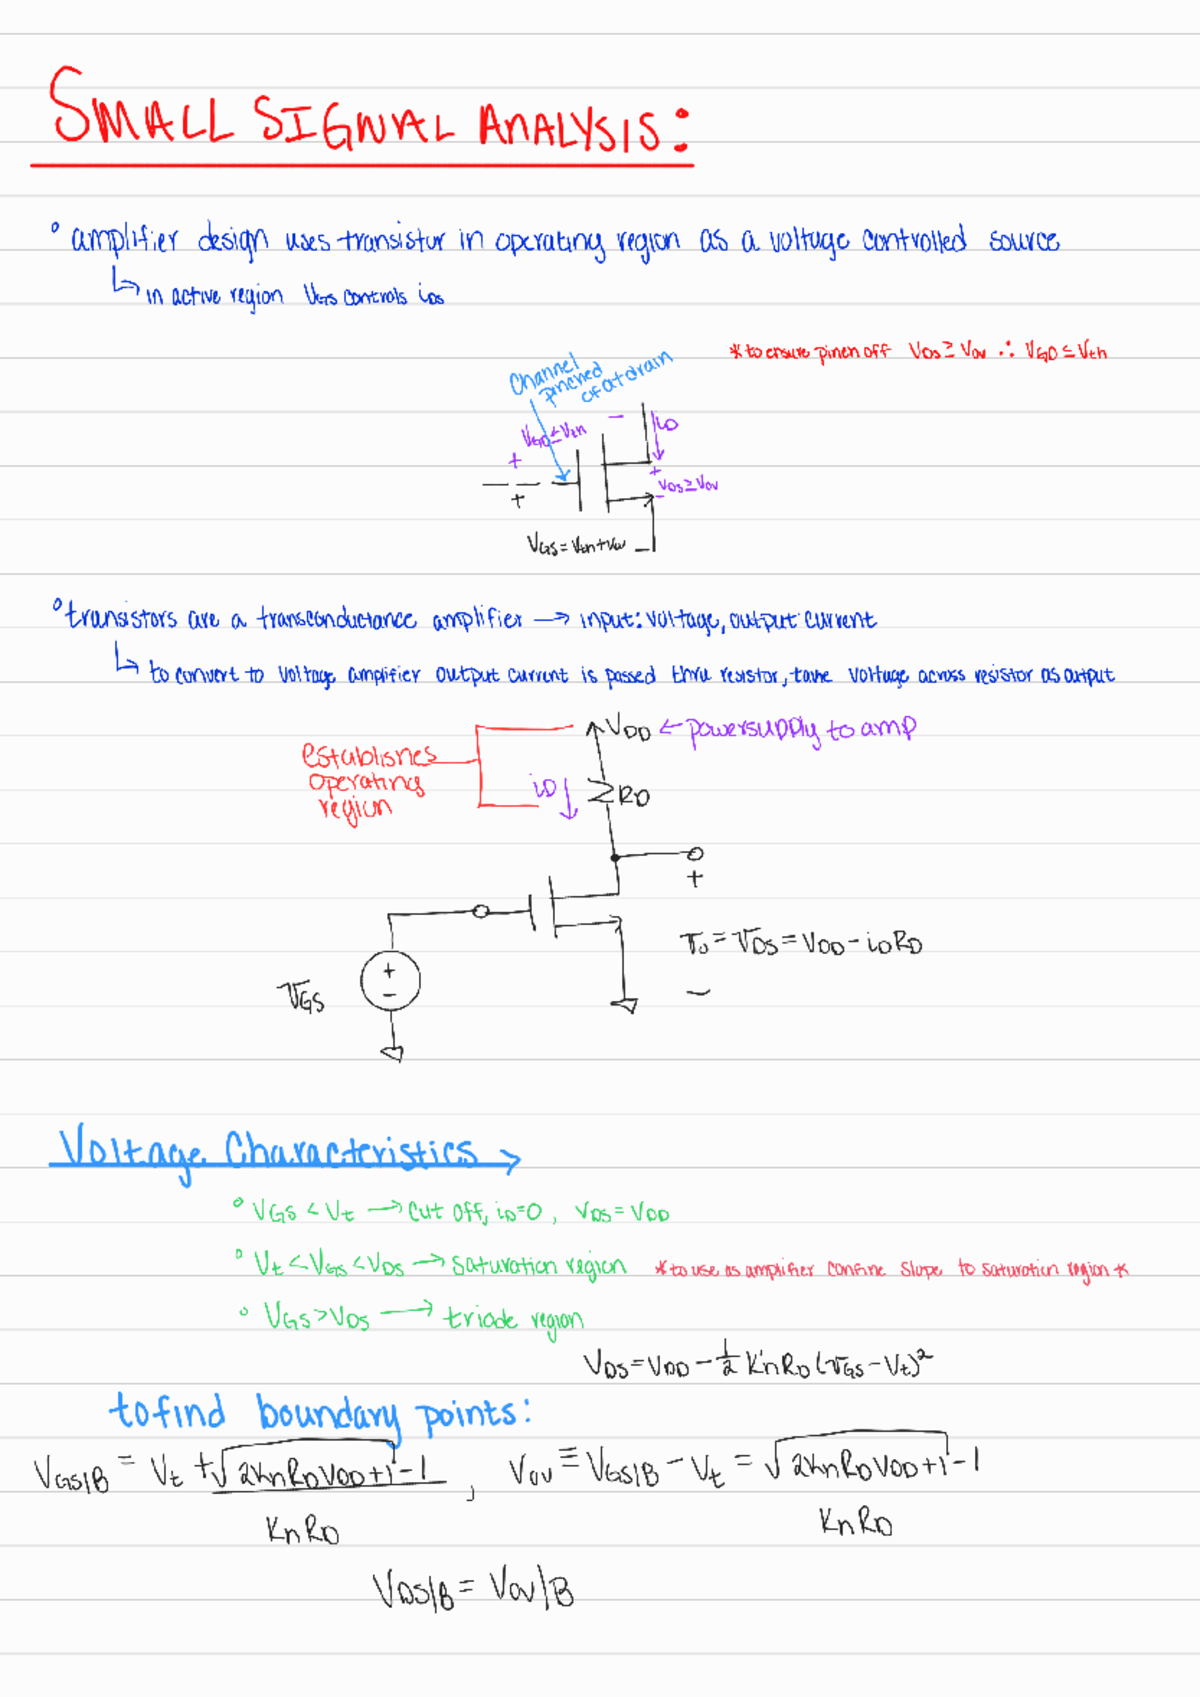 SMALL SIGNAL ANALYSIS:
° amplifier design uses transistor in operating region as a voltage controlled source
↳ in active region VGS controls iDS
* to ensure pinch off VDS ≥ VOV ∴ VGD ≤ Vth
Channel pinched off at drain
VGD ≤ Vth
− iD
+ +
VDS ≥ VOV
+ −
VGS = Vth + VOV
° transistors are a transconductance amplifier → input: voltage, output current
↳ to convert to voltage amplifier output current is passed thru resistor, take voltage across resistor as output
VDD ← power supply to amp
establishes
operating
region
iD ↓ RD
+
vo = vDS = VDD − iDRD
−
+
−
vGS
Voltage Characteristics →
° VGS < Vt → cut off, iD=0, VDS = VDD
° Vt < VGS < VDS → saturation region * to use as amplifier confine slope to saturation region *
° VGS > VDS → triode region
VDS = VDD − 1/2 K'nRD (vGS − Vt)²
to find boundary points:
VGS|B = Vt + (√(2KnRDVDD+1) − 1)/KnRD , VOV ≡ VGS|B − Vt = √(2KnRDVDD+1) − 1
KnRD
VDS|B = VOV|B